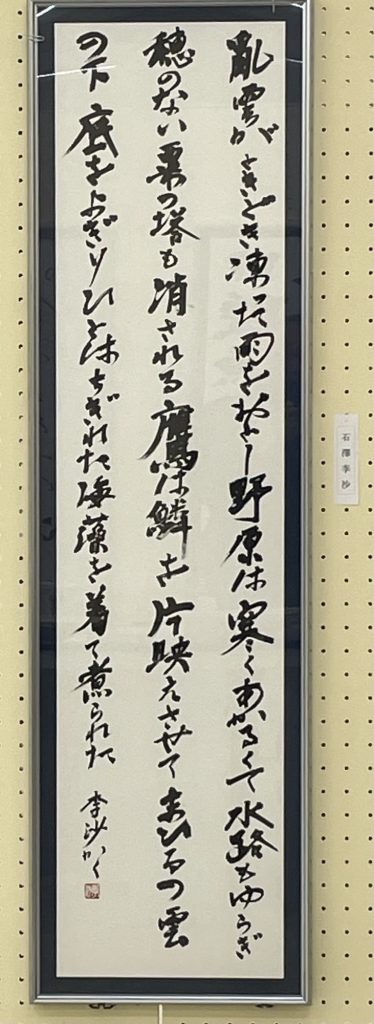 亂雲がときどき凍った雨をおとし野原は寒くあかるくて水路もゆらぎ
穂のない粟の塔も消される鷹は鱗を片映えさせてまひるの雲
の下底をよぎりひとはちぎれた海藻を着て煮られた
李沙かく
石澤李沙